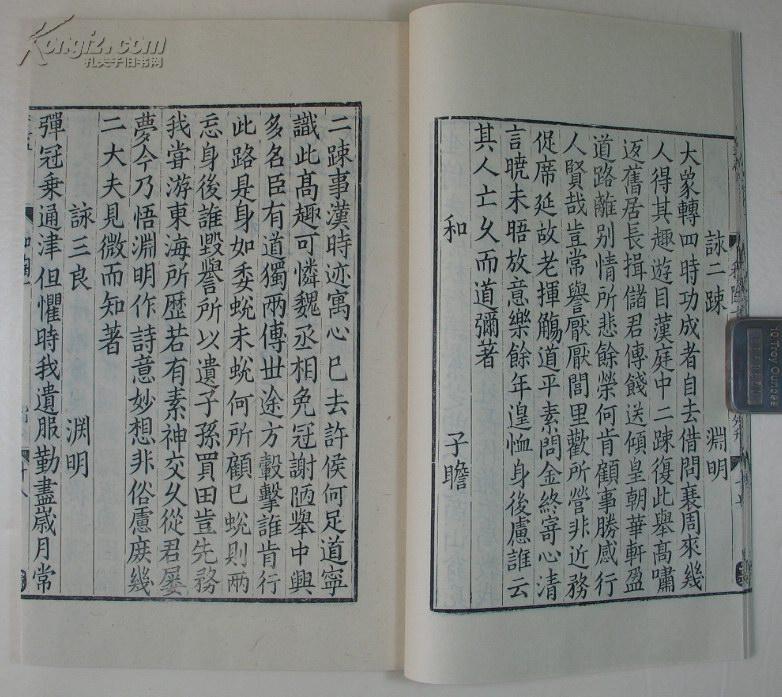 詠二疎 淵明
大象轉四時功成者自去借問衰周來幾
人得其趣遊目漢庭中二疎復此舉高嘯
返舊居長揖儲君傅餞送傾皇朝華軒盈
道路離別情所悲餘榮何肯顧事勝感行
人賢哉豈常譽厭厭閭里歡所營非近務
促席延故老揮觴道平素問金終寄心清
言曉未晤放意樂餘年遑恤身後慮誰云
其人亡久而道彌著
和 子瞻
二疎事漢時迹寓心已去許侯何足道寧
識此高趣可憐魏丞相免冠謝陋舉中興
多名臣有道獨兩傅世途方轂擊誰肯行
此路是身如委蛻未蛻何所顧已蛻則兩
忘身後誰毀譽所以遺子孫買田豈先務
我嘗游東海所歷若有素神交久從君屡
夢今乃悟淵明作詩意妙想非俗慮庶幾
二大夫見微而知著
詠三良 淵明
彈冠乗通津但懼時我遺服勤盡歲月常
Kongfz.com
孔夫子旧书网